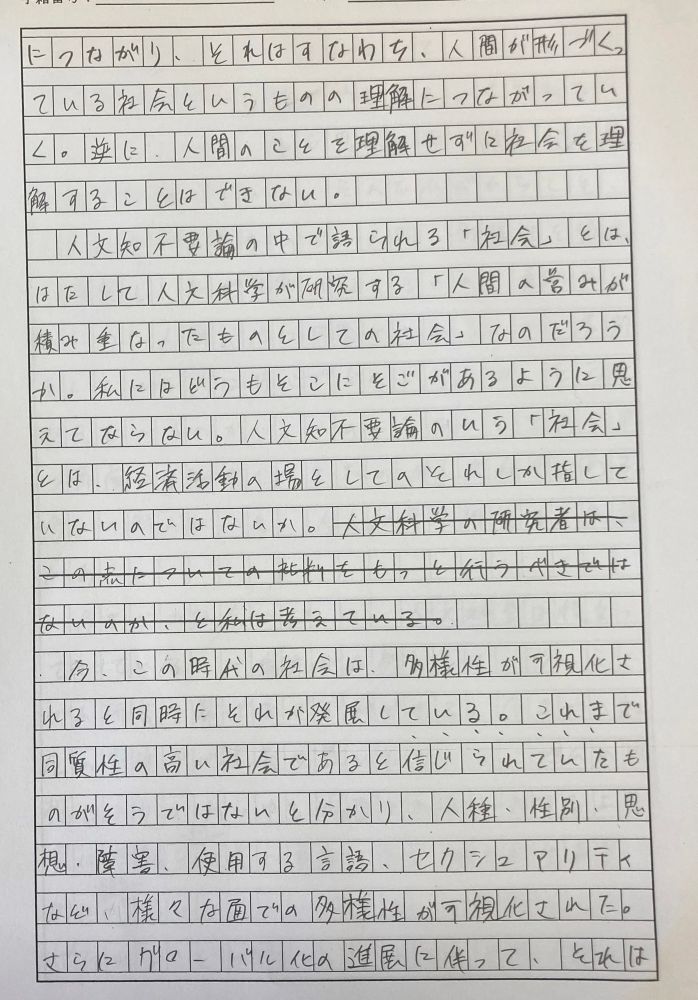 につながり、それはすなわち、人間が形づくっ
ている社会というものの理解につながってい
く。逆に、人間のことを理解せずに社会を理
解することはできない。
人文知不要論の中で語られる「社会」とは、
はたして人文科学が研究する「人間の営みが
積み重なったものとしての社会」なのだろう
か。私にはどうもそこにそごがあるように思
えてならない。人文知不要論のいう「社会」
とは、経済活動の場としてのそれしか指して
いないのではないか。人文科学の研究者は、
この点についての批判をもっと行うべきでは
ないのか、と私は考えている。
今、この時代の社会は、多様性が可視化さ
れると同時にそれが発展している。これまで
同質性の高い社会であると信じられていたも
のがそうではないと分かり、人種・性別・思
想・障害、使用する言語、セクシュアリティ
など、様々な面での多様性が可視化された。
さらにグローバル化の進展に伴って、それは